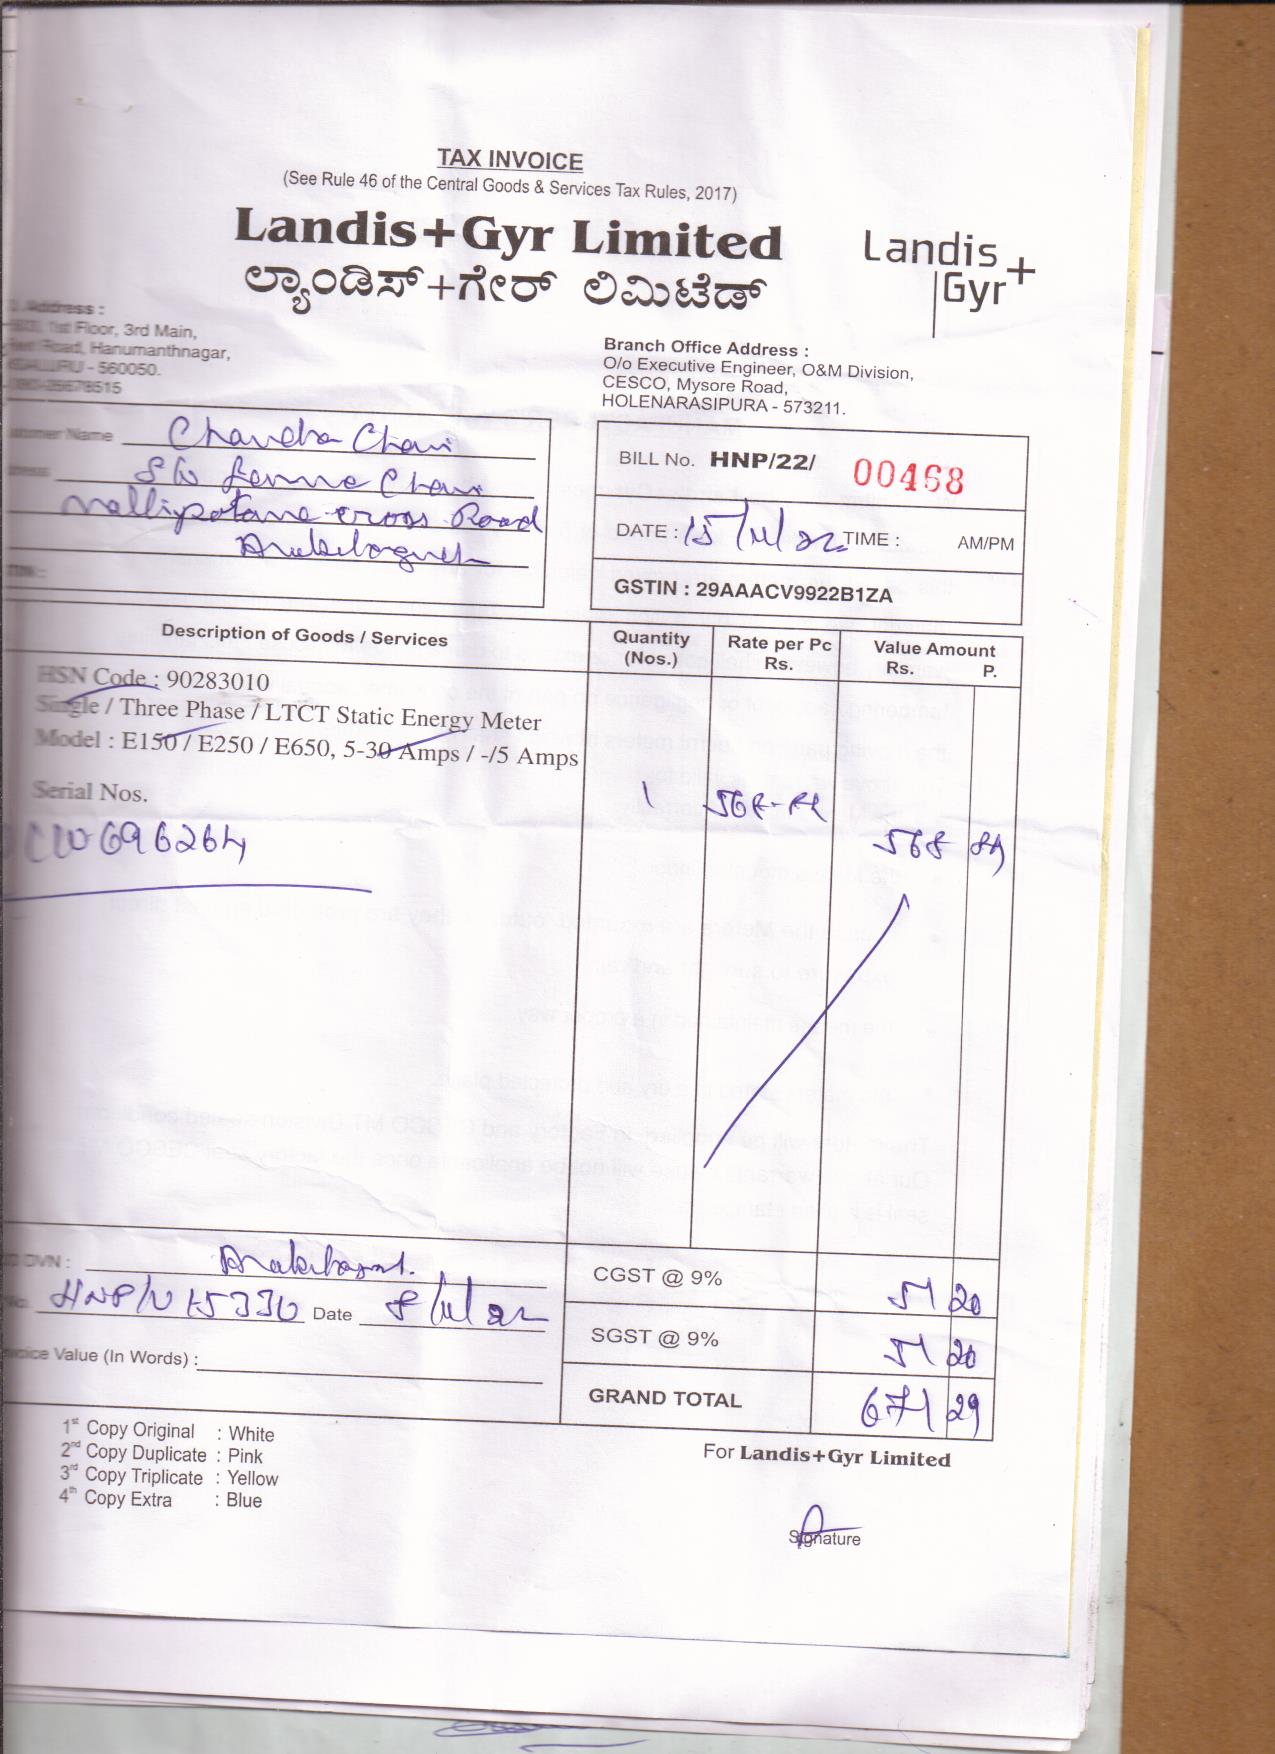 TAX INVOICE
(See Rule 46 of the Central Goods & Services Tax Rules, 2017)
Landis+Gyr Limited
ಲ್ಯಾಂಡಿಸ್+ಗೇರ್ ಲಿಮಿಟೆಡ್
Landis
Gyr+
Address :
1st Floor, 3rd Main,
Road, Hanumanthnagar,
- 560050.
Branch Office Address :
O/o Executive Engineer, O&M Division,
CESCO, Mysore Road,
HOLENARASIPURA - 573211.
Name Chandra Chari
S/o Chari
cross Road
BILL No. HNP/22/ 00468
DATE : 15/11/22 TIME : AM/PM
GSTIN : 29AAACV9922B1ZA
Description of Goods / Services Quantity (Nos.) Rate per Pc Rs. Value Amount Rs. P.
HSN Code : 90283010
Single / Three Phase / LTCT Static Energy Meter
Model : E150 / E250 / E650, 5-30 Amps / -/5 Amps
Serial Nos. 1
568
696264
DVN :
CGST @ 9% 51 20
Date 8/11/22
SGST @ 9% 51 20
Value (In Words) :
GRAND TOTAL 671 29
1st Copy Original : White
2nd Copy Duplicate : Pink
3rd Copy Triplicate : Yellow
4th Copy Extra : Blue
For Landis+Gyr Limited
Signature